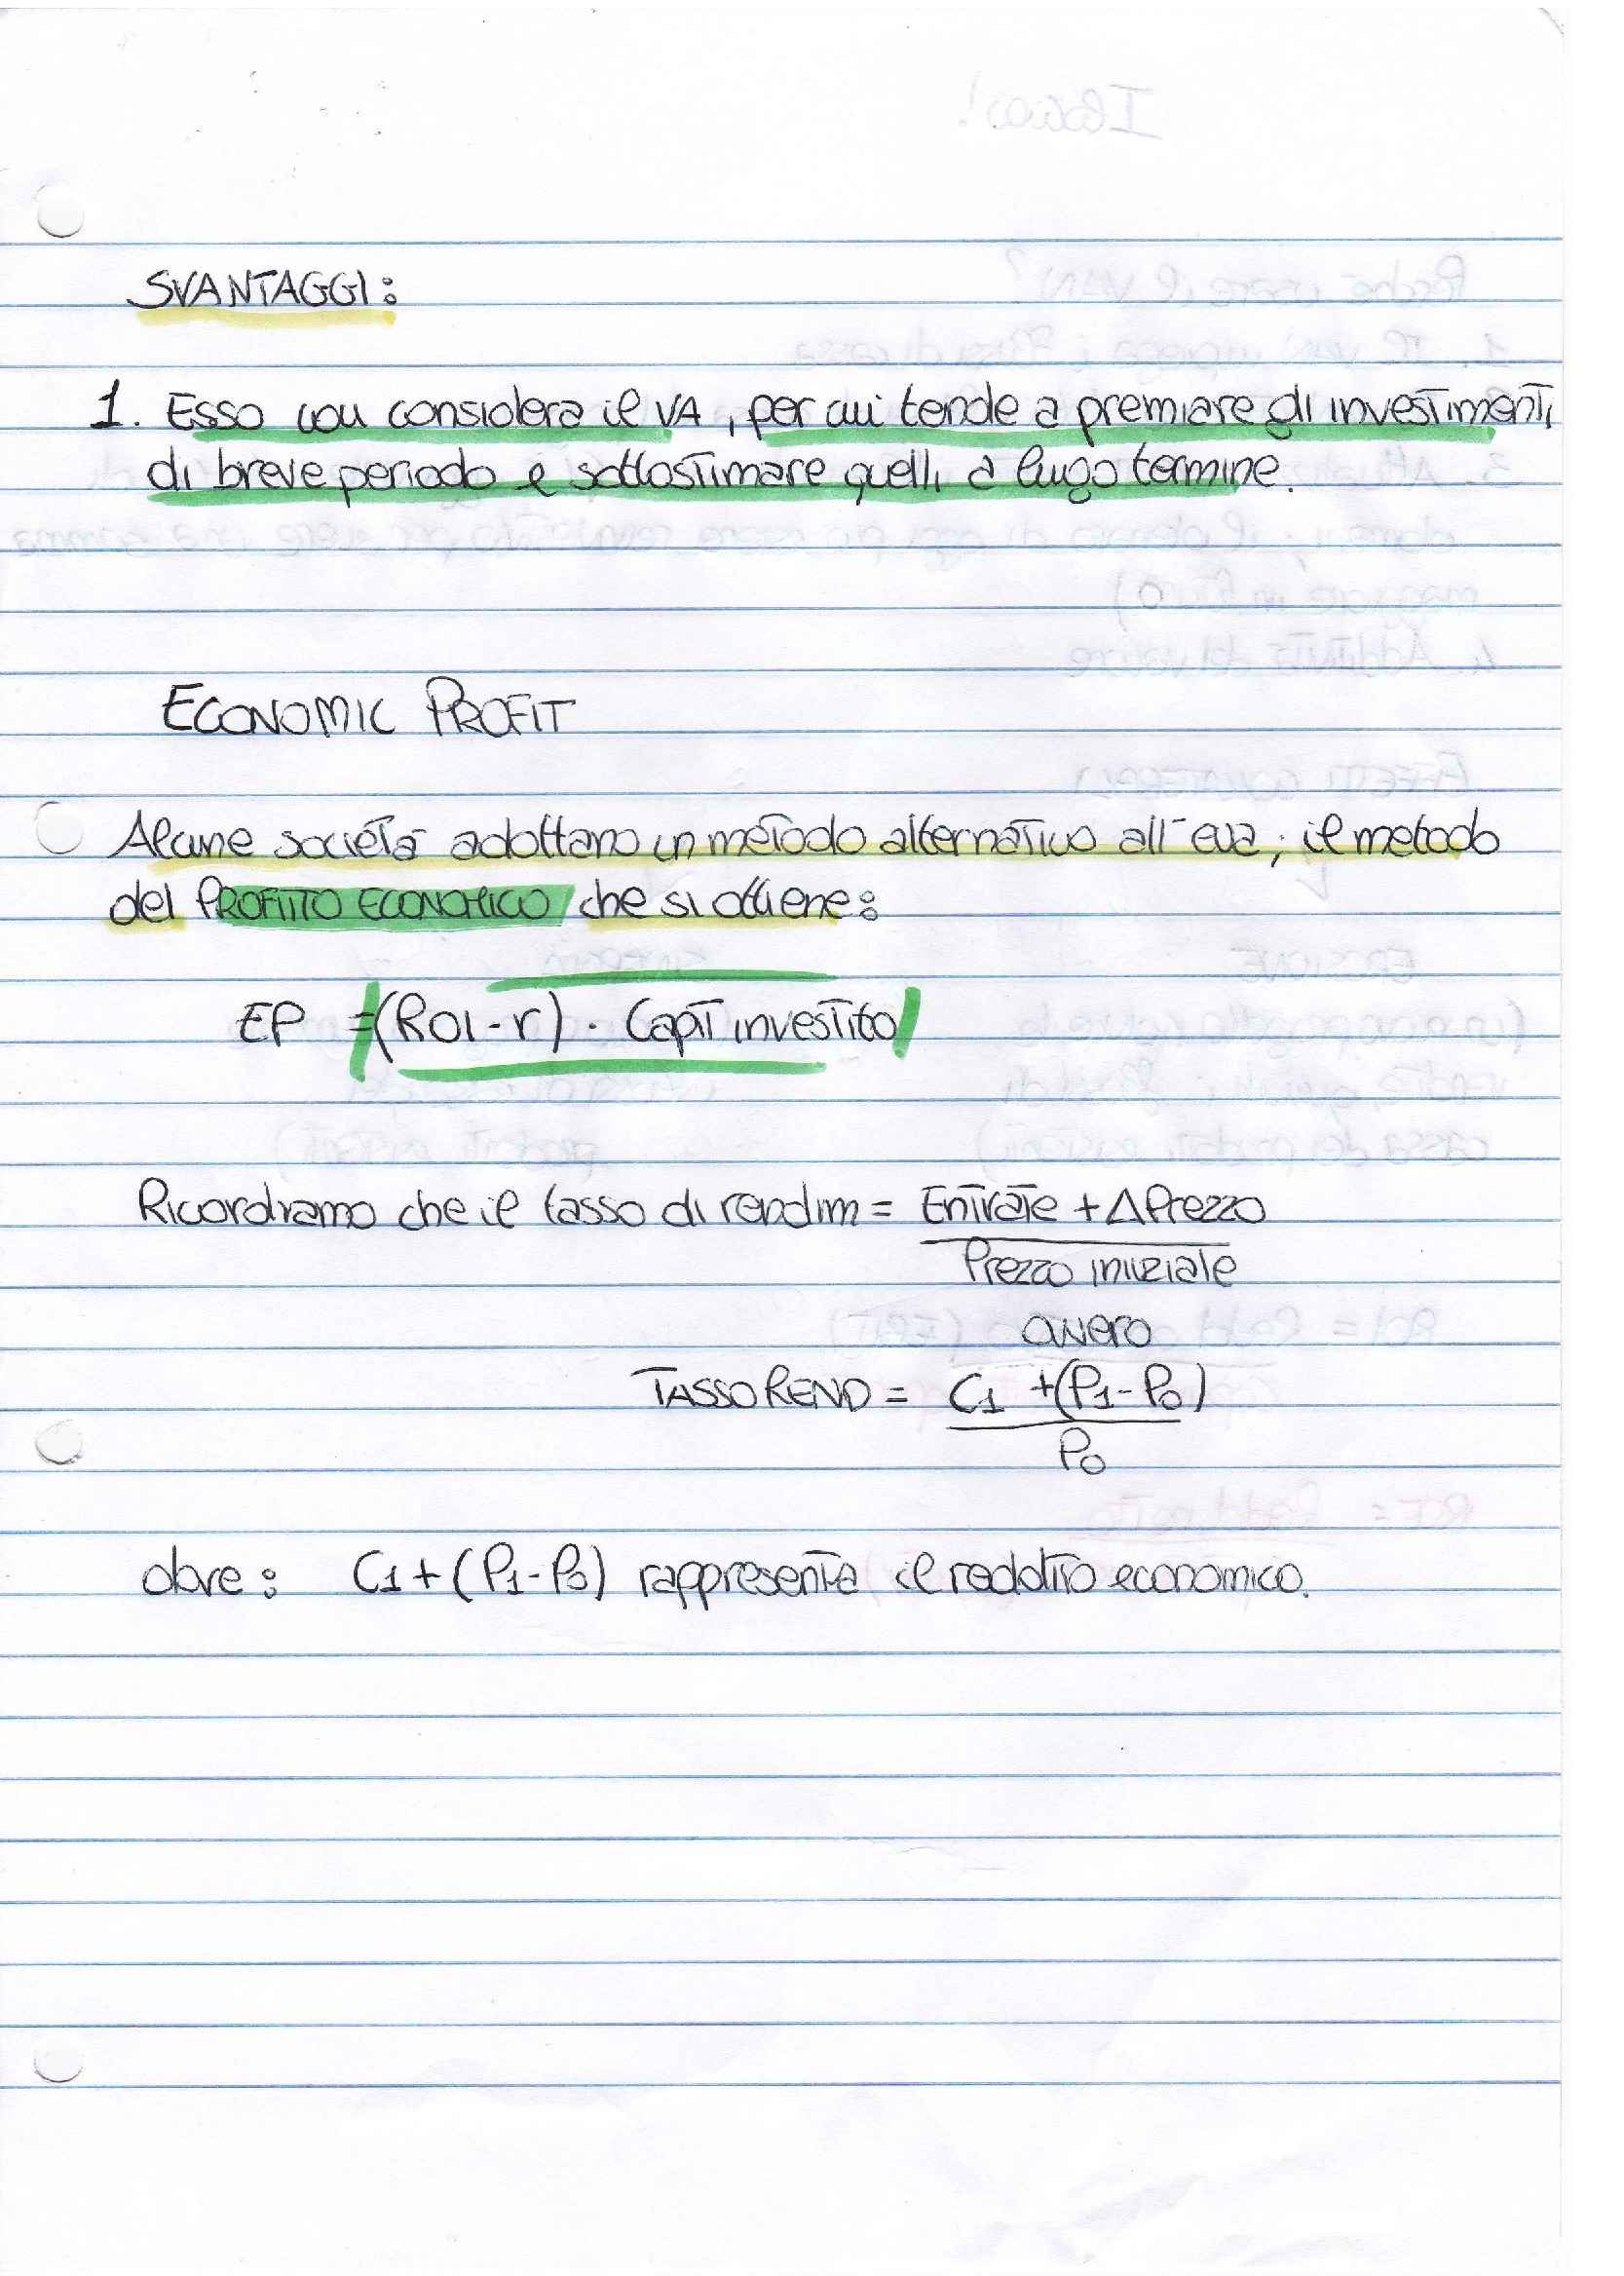 SVANTAGGI:
1. Esso non considera il VA, per cui tende a premiare gli investimenti
di breve periodo e sottostimare quelli a lugo termine.
ECONOMIC PROFIT
Alcune società adottano un metodo alternativo all'eva; il metodo
del PROFITTO ECONOMICO che si ottiene:
EP = (ROI - r) · Capit investito
Ricordiamo che il tasso di rendim = Entrate + Δ Prezzo
Prezzo iniziale
ovvero
TASSO REND = C1 + (P1 - P0)
P0
dove: C1 + (P1 - P0) rappresenta il reddito economico.